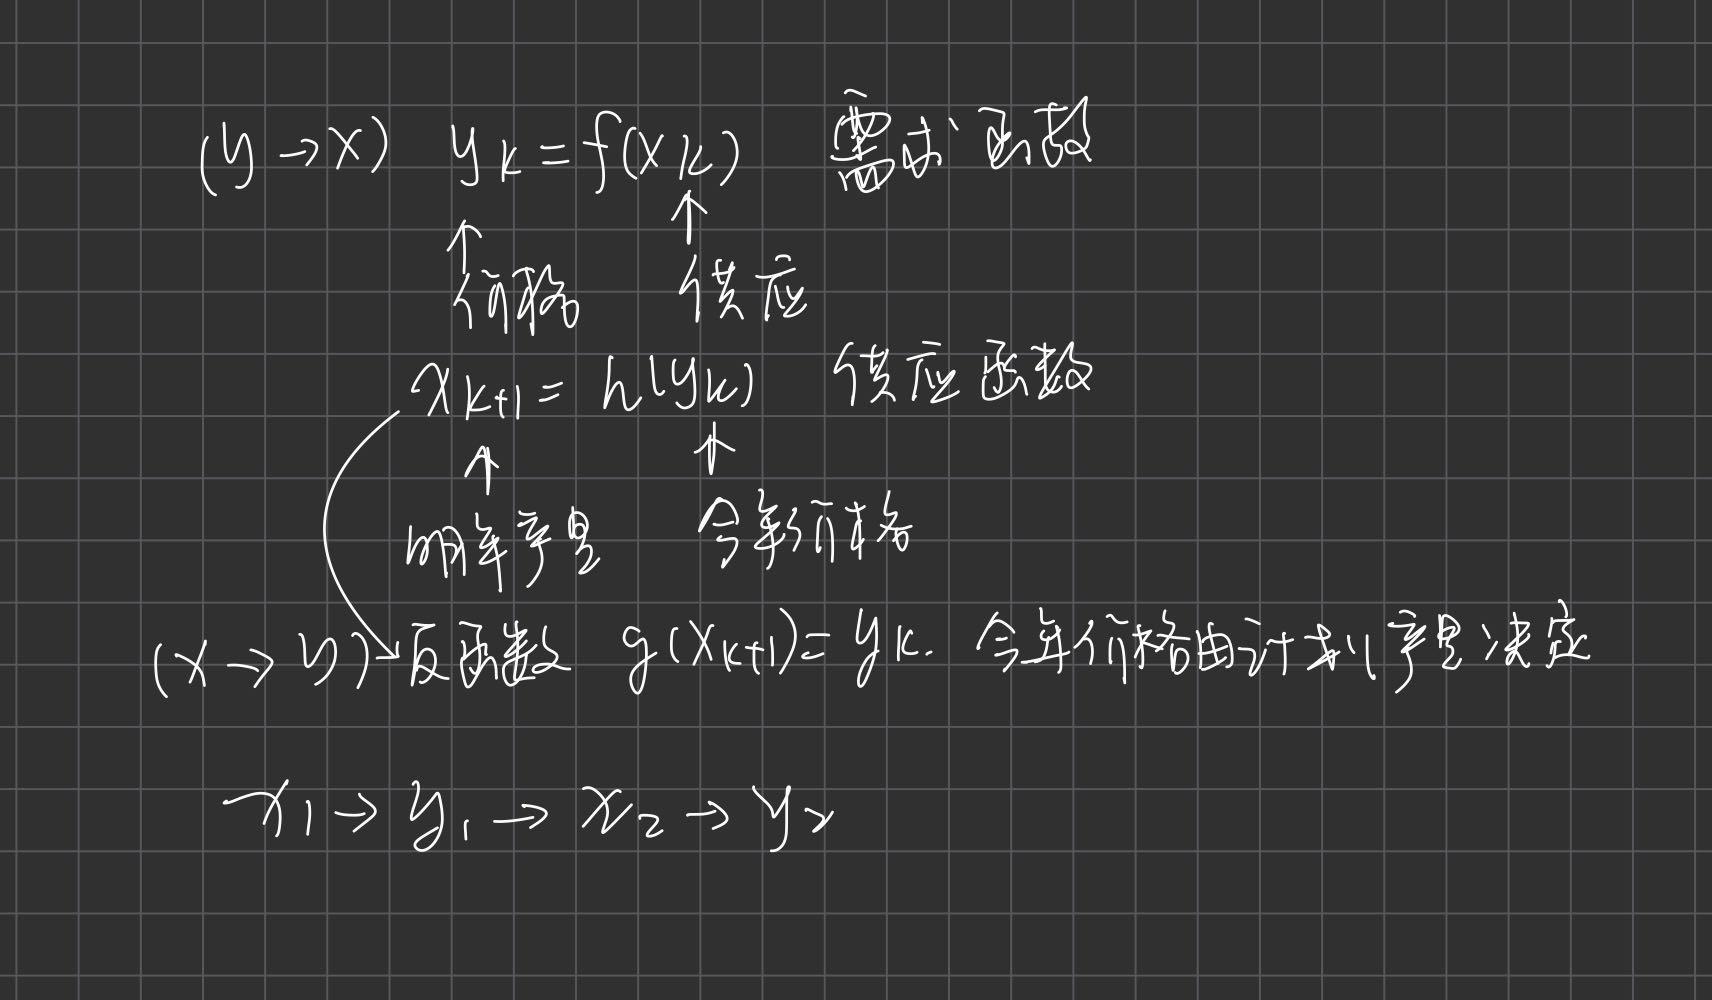 (y→x) yk=f(xk) 需求函数
↑ ↑
价格 供应
xk+1=h(yk) 供应函数
↑ ↑
明年产量 今年价格
(x→y) 反函数 g(xk+1)=yk. 今年价格由计划产量决定
x1→y1→x2→y2